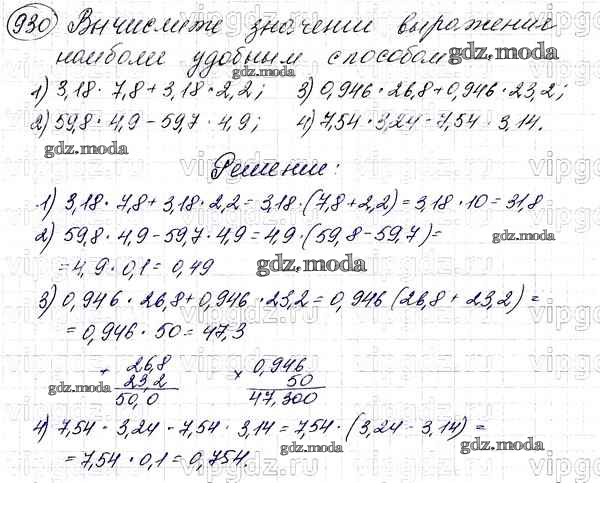 930 Вычислите значении выражения
наиболи удобным способом
gdz.moda
1) 3,18 · 7,8 + 3,18 · 2,2; 3) 0,946 · 26,8 + 0,946 · 23,2;
2) 59,8 · 4,9 - 59,7 · 4,9; 4) 7,54 · 3,24 - 7,54 · 3,14.
gdz.moda
Решение:
1) 3,18 · 7,8 + 3,18 · 2,2 = 3,18 · (7,8 + 2,2) = 3,18 · 10 = 31,8
2) 59,8 · 4,9 - 59,7 · 4,9 = 4,9 · (59,8 - 59,7) =
gdz.moda
= 4,9 · 0,1 = 0,49
gdz.moda
3) 0,946 · 26,8 + 0,946 · 23,2 = 0,946 (26,8 + 23,2) =
= 0,946 · 50 = 47,3
+ 26,8 × 0,946
23,2 50
50,0 47,300
gdz.moda gdz.moda
4) 7,54 · 3,24 - 7,54 · 3,14 = 7,54 · (3,24 - 3,14) =
gdz.moda gdz.moda
= 7,54 · 0,1 = 0,754.